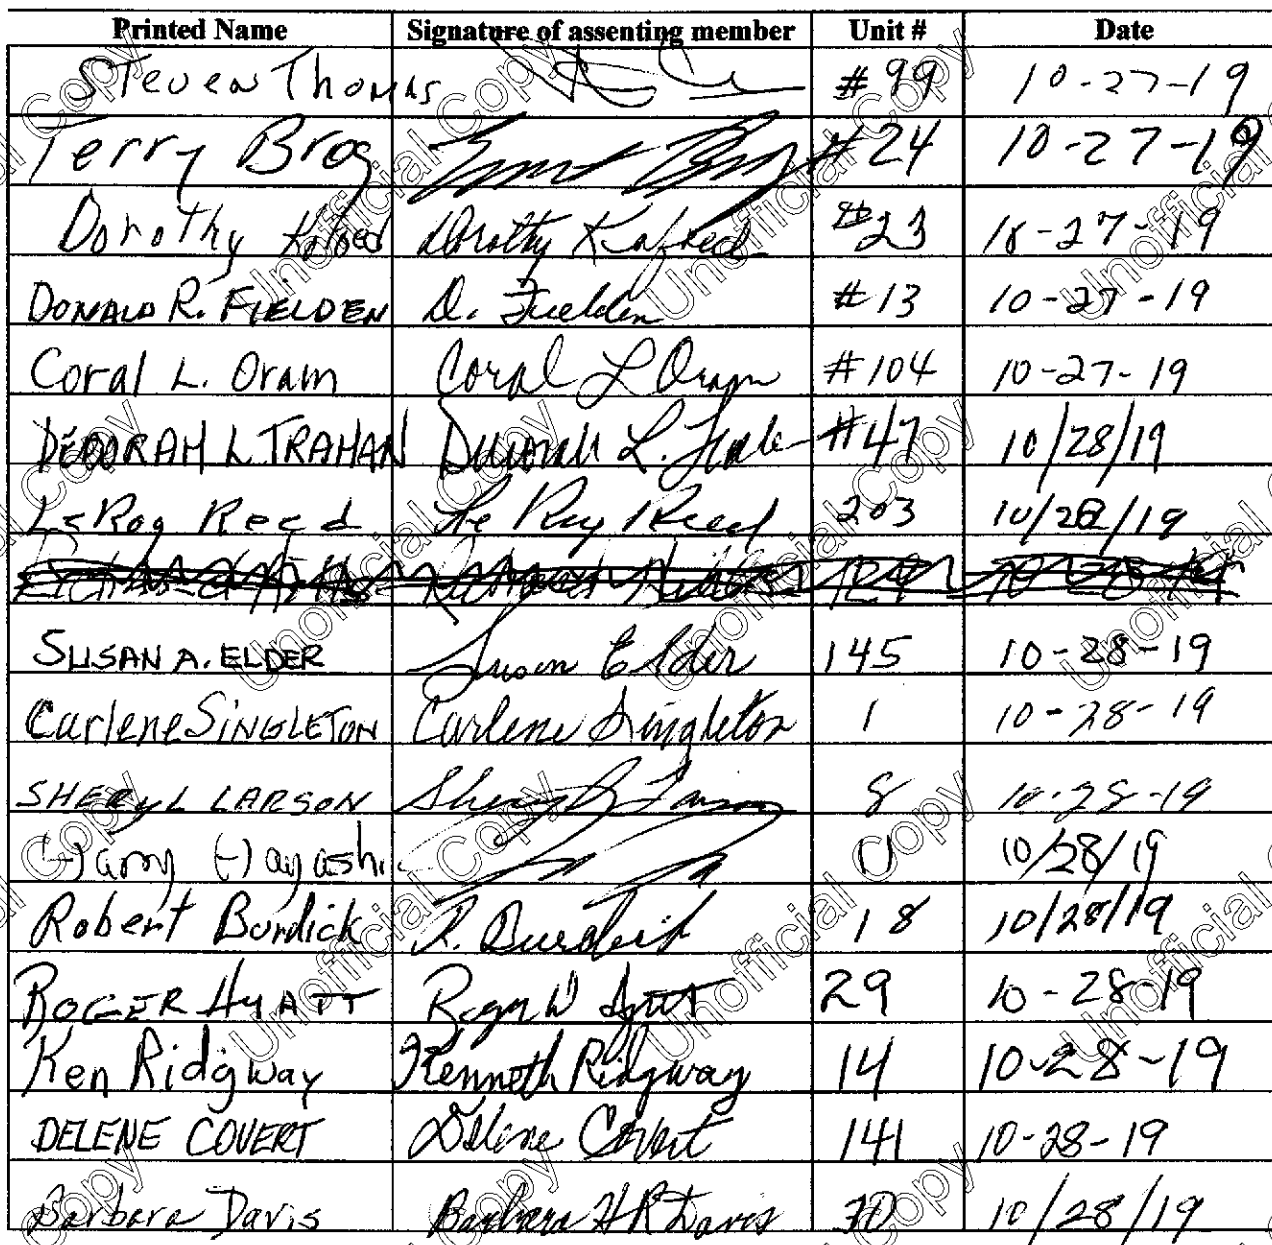 Printed Name Signature of assenting member Unit # Date
Steven Thomas #99 10-27-19
Terry Bros #24 10-27-19
Dorothy Dorothy #23 10-27-19
DONALD R. FIELDEN D. Fielden #13 10-27-19
Coral L. Oram Coral L Oram #104 10-27-19
DEBORAH L TRAHAN Deborah L. #47 10/28/19
LeRoy Reed Le Roy Reed 203 10/28/19
SUSAN A. ELDER Susan Elder 145 10-28-19
Carlene SINGLETON Carlene Singleton 1 10-28-19
SHERYL LARSON Sheryl Larson 8 10-28-19
Harry Hayashi 11 10/28/19
Robert Burdick R. Burdick 18 10/28/19
ROGER HYATT Roger W Hyatt 29 10-28-19
Ken Ridgway Kenneth Ridgway 14 10-28-19
DELENE COVERT Delene Covert 141 10-28-19
Barbara Davis Barbara H R Davis 70 10/28/19
Unofficial Copy